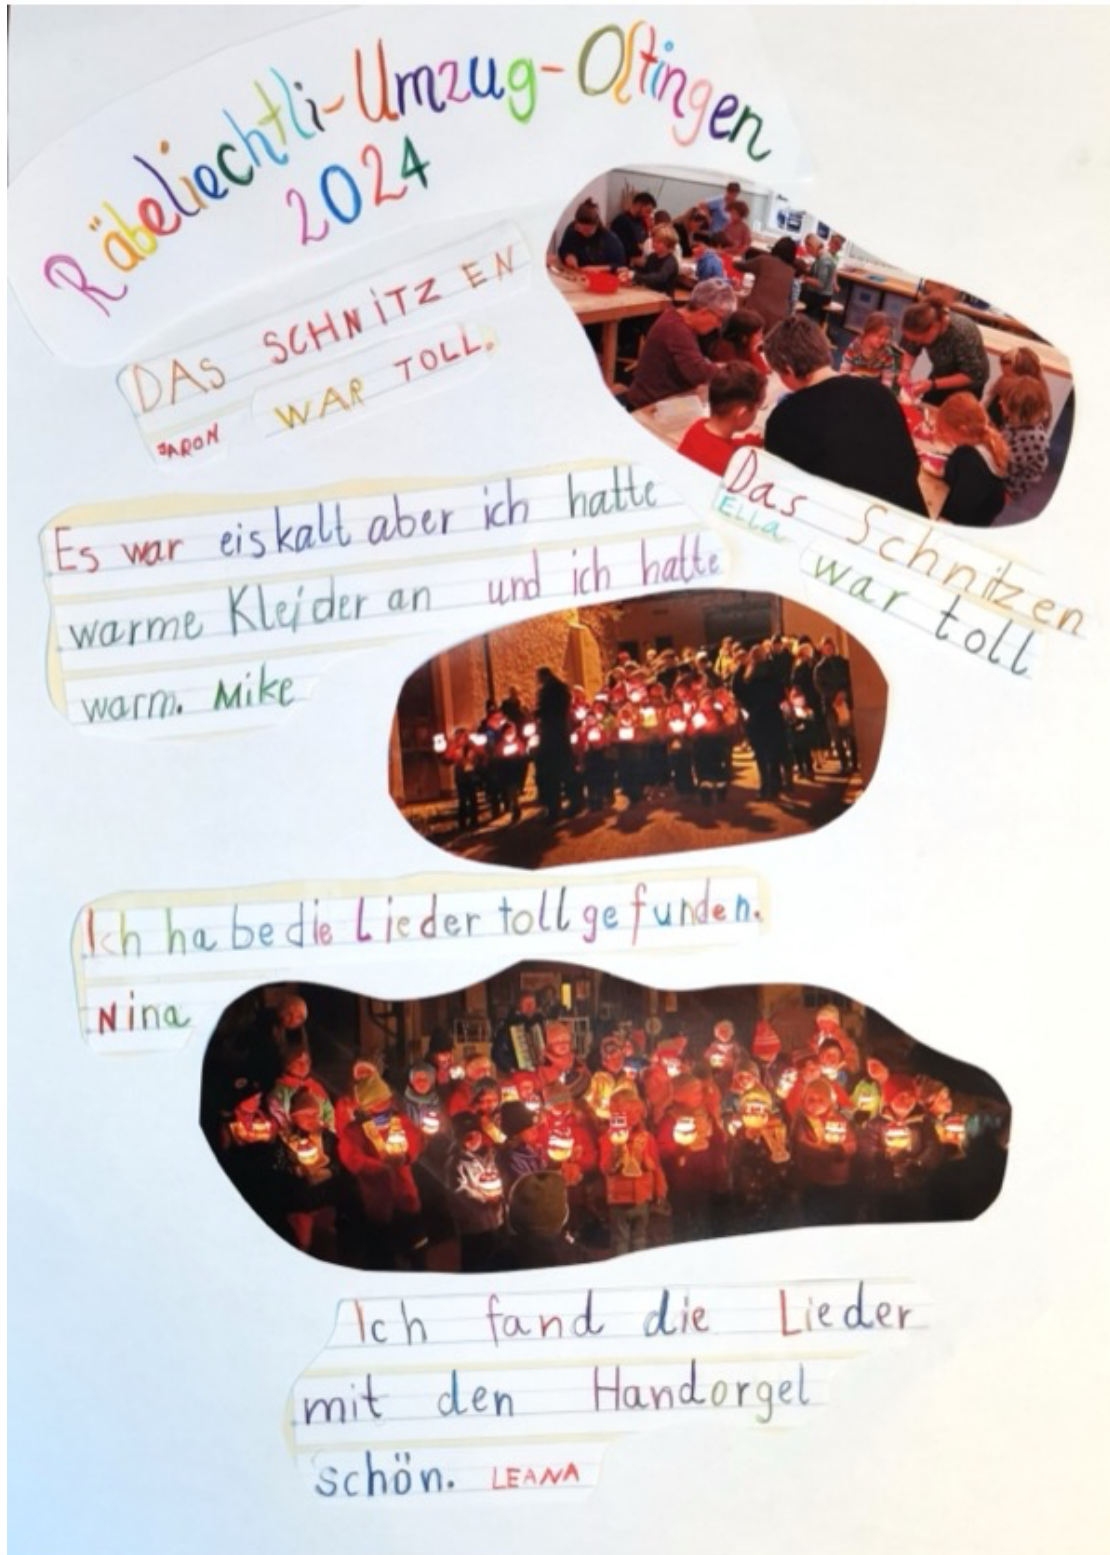 Räbeliechtli-Umzug-Oltingen
2024
DAS SCHNITZEN
WAR TOLL.
JARON
Das Schnitzen
ELLA
war toll
Es war eiskalt aber ich hatte
warme Kleider an und ich hatte
warm. Mike
Ich habe die Lieder toll gefunden.
Nina
Ich fand die Lieder
mit den Handorgel
schön. LEANA